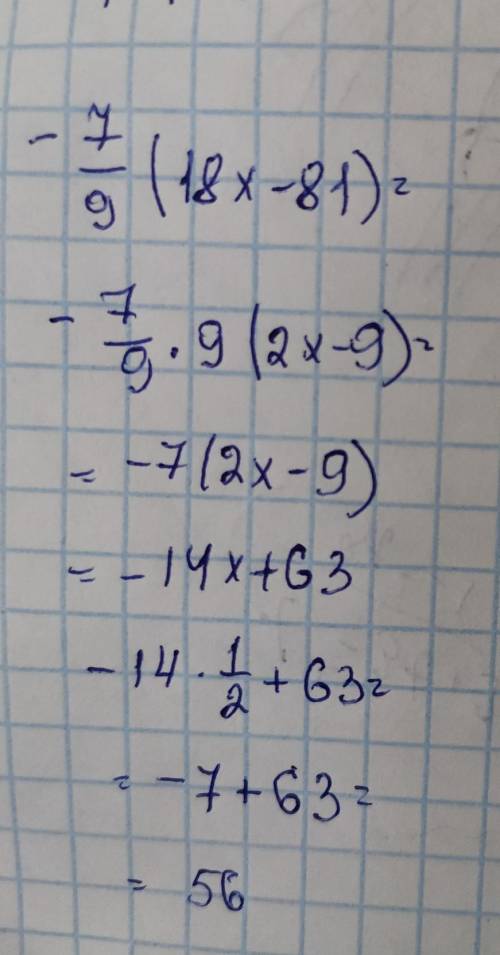 - 7/9 (18x - 81) =
- 7/9 · 9 (2x - 9) =
= -7(2x - 9)
= -14x + 63
-14 · 1/2 + 63 =
= -7 + 63 =
= 56